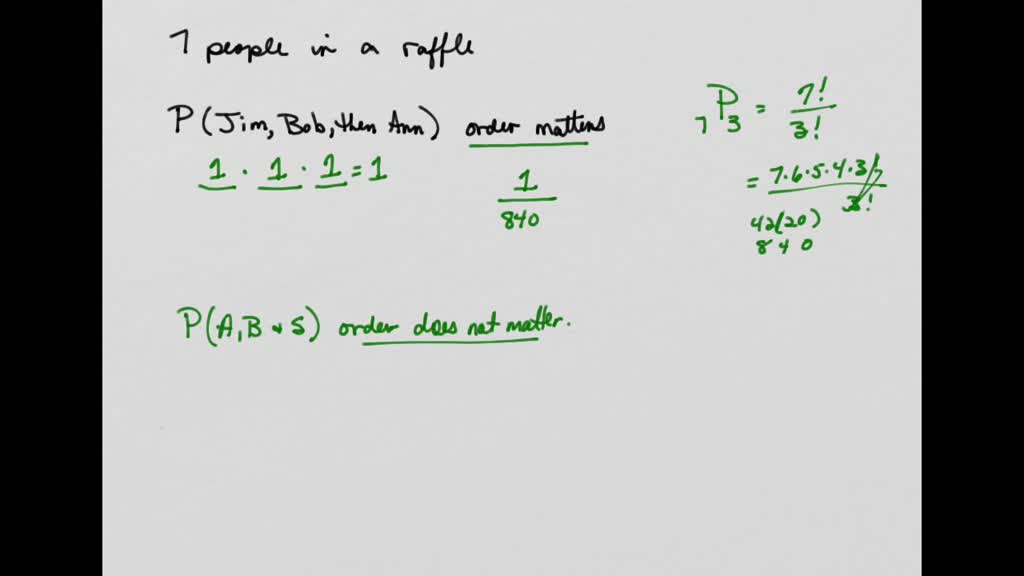 7 people in a raffle
P(Jim, Bob, then Ann) order matters
1 · 1 · 1 = 1
1
840
7P3 = 7!
3!
= 7·6·5·4·3!
3!
42(20)
840
P(A, B & S) order does not matter.